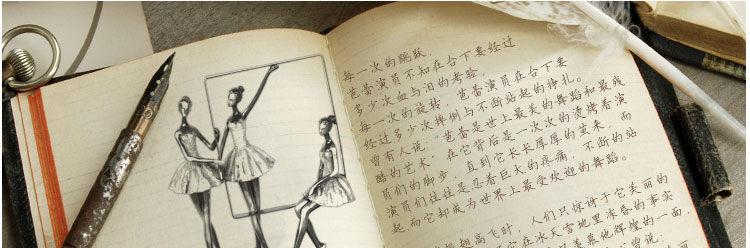 每一次的跳跃，
芭蕾演员不知在台下要经过
多少次血与泪的考验，
每一次的旋转，芭蕾演员在台下要
经过多少次摔倒与不断站起的挣扎。
曾有人说：“芭蕾是世上最美的舞蹈和最残
酷的艺术，在它背后是一次次的烫烤着演
员们的脚步，直到它长长厚厚的茧来，而
演员们往往是忍着巨大的疼痛，不断的站
起而它却成为世界上最受欢迎的舞蹈。
翅高飞时，人们只惊讶于它美丽的
它在冰天雪地里冻昏的事实
羡慕他辉煌的一面，
曾说：